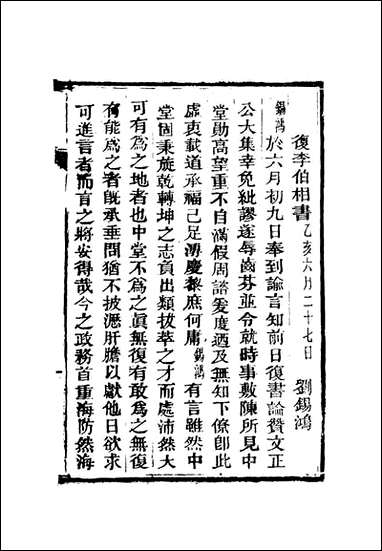 復李伯相書 乙亥六月二十七日 劉錫鴻
錫鴻於六月初九日奉到諭言知前日復書論贊文正
公大集幸免紕謬遂辱齒芬並令就時事敷陳所見中
堂勛高望重不自滿假周諮爰度迺及無知下僚卽此
虛衷載道承福己足溥慶黎庶何庸錫鴻有言雖然中
堂固秉旋乾轉坤之志負出類拔萃之才而處沛然大
可有爲之地者也中堂不爲之眞無復有敢爲之無復
有能爲之者旣承垂問猶不披瀝肝膽以獻他日欲求
可進言者而言之將安得哉今之政務首重海防然海